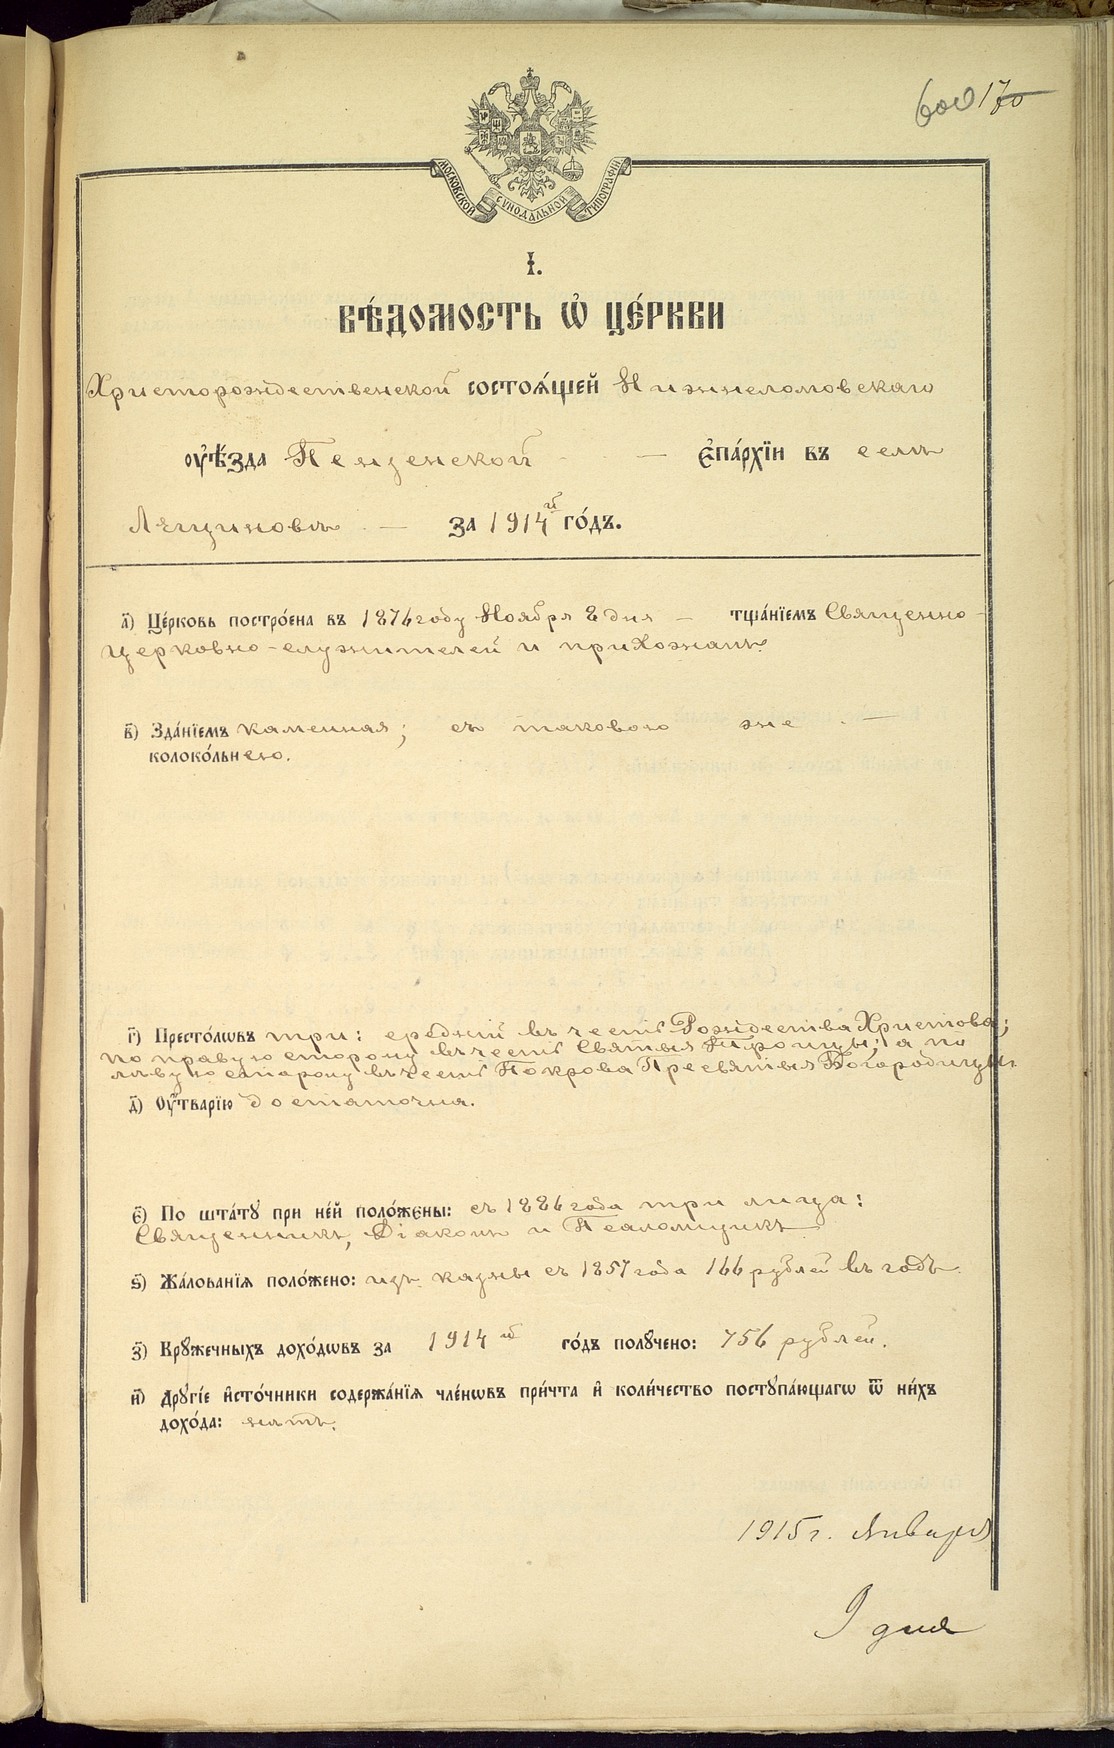 600 170
МОСКОВСКОЙ СѴНОДАЛЬНОЙ ТИПОГРАФІИ
І.
ВѢ́ДОМОСТЬ Ѡ҆ ЦЕ́РКВИ
Христорождественской состоѧ́щей Нижнеломовскаго
ᲂу҆ѣ́зда Пензенской — є҆па́рхїи въ селѣ
Лещиновѣ — за 1914й го́дъ.
а҃) Це́рковь постро́ена въ 1876 году Ноября 8 дня — тща́нїемъ Священно-
церковно-служителей и прихожанъ.
в҃) Зда́нїемъ каменная; съ таковою же —
колоко́льнею.
г҃) Престо́лѡвъ три: средній въ честь Рождества Христова;
по правую сторону въ честь Святыя Троицы; а по
лѣвую сторону въ честь Покрова Пресвятыя Богородицы.
д҃) Оу҆́тварїю достаточна.
є҃) По шта́тꙋ при не́й поло́жены: съ 1886 года три лица:
Священникъ, Діаконъ и Псаломщикъ
ѕ҃) Жа́лованїѧ поло́жено: изъ казны съ 1857 года 166 рублей въ годъ.
з҃) Крꙋ́жечныхъ дохо́дѡвъ за 1914й го́дъ полꙋ́чено: 756 рублей.
и҃) Дрꙋгі́е и҆сто́чники содержа́нїѧ чле́нѡвъ при́чта и҆ коли́чество постꙋпа́ющагѡ ѿ ни́хъ
дохо́да: нѣтъ.
1915 г. Января
9 дня